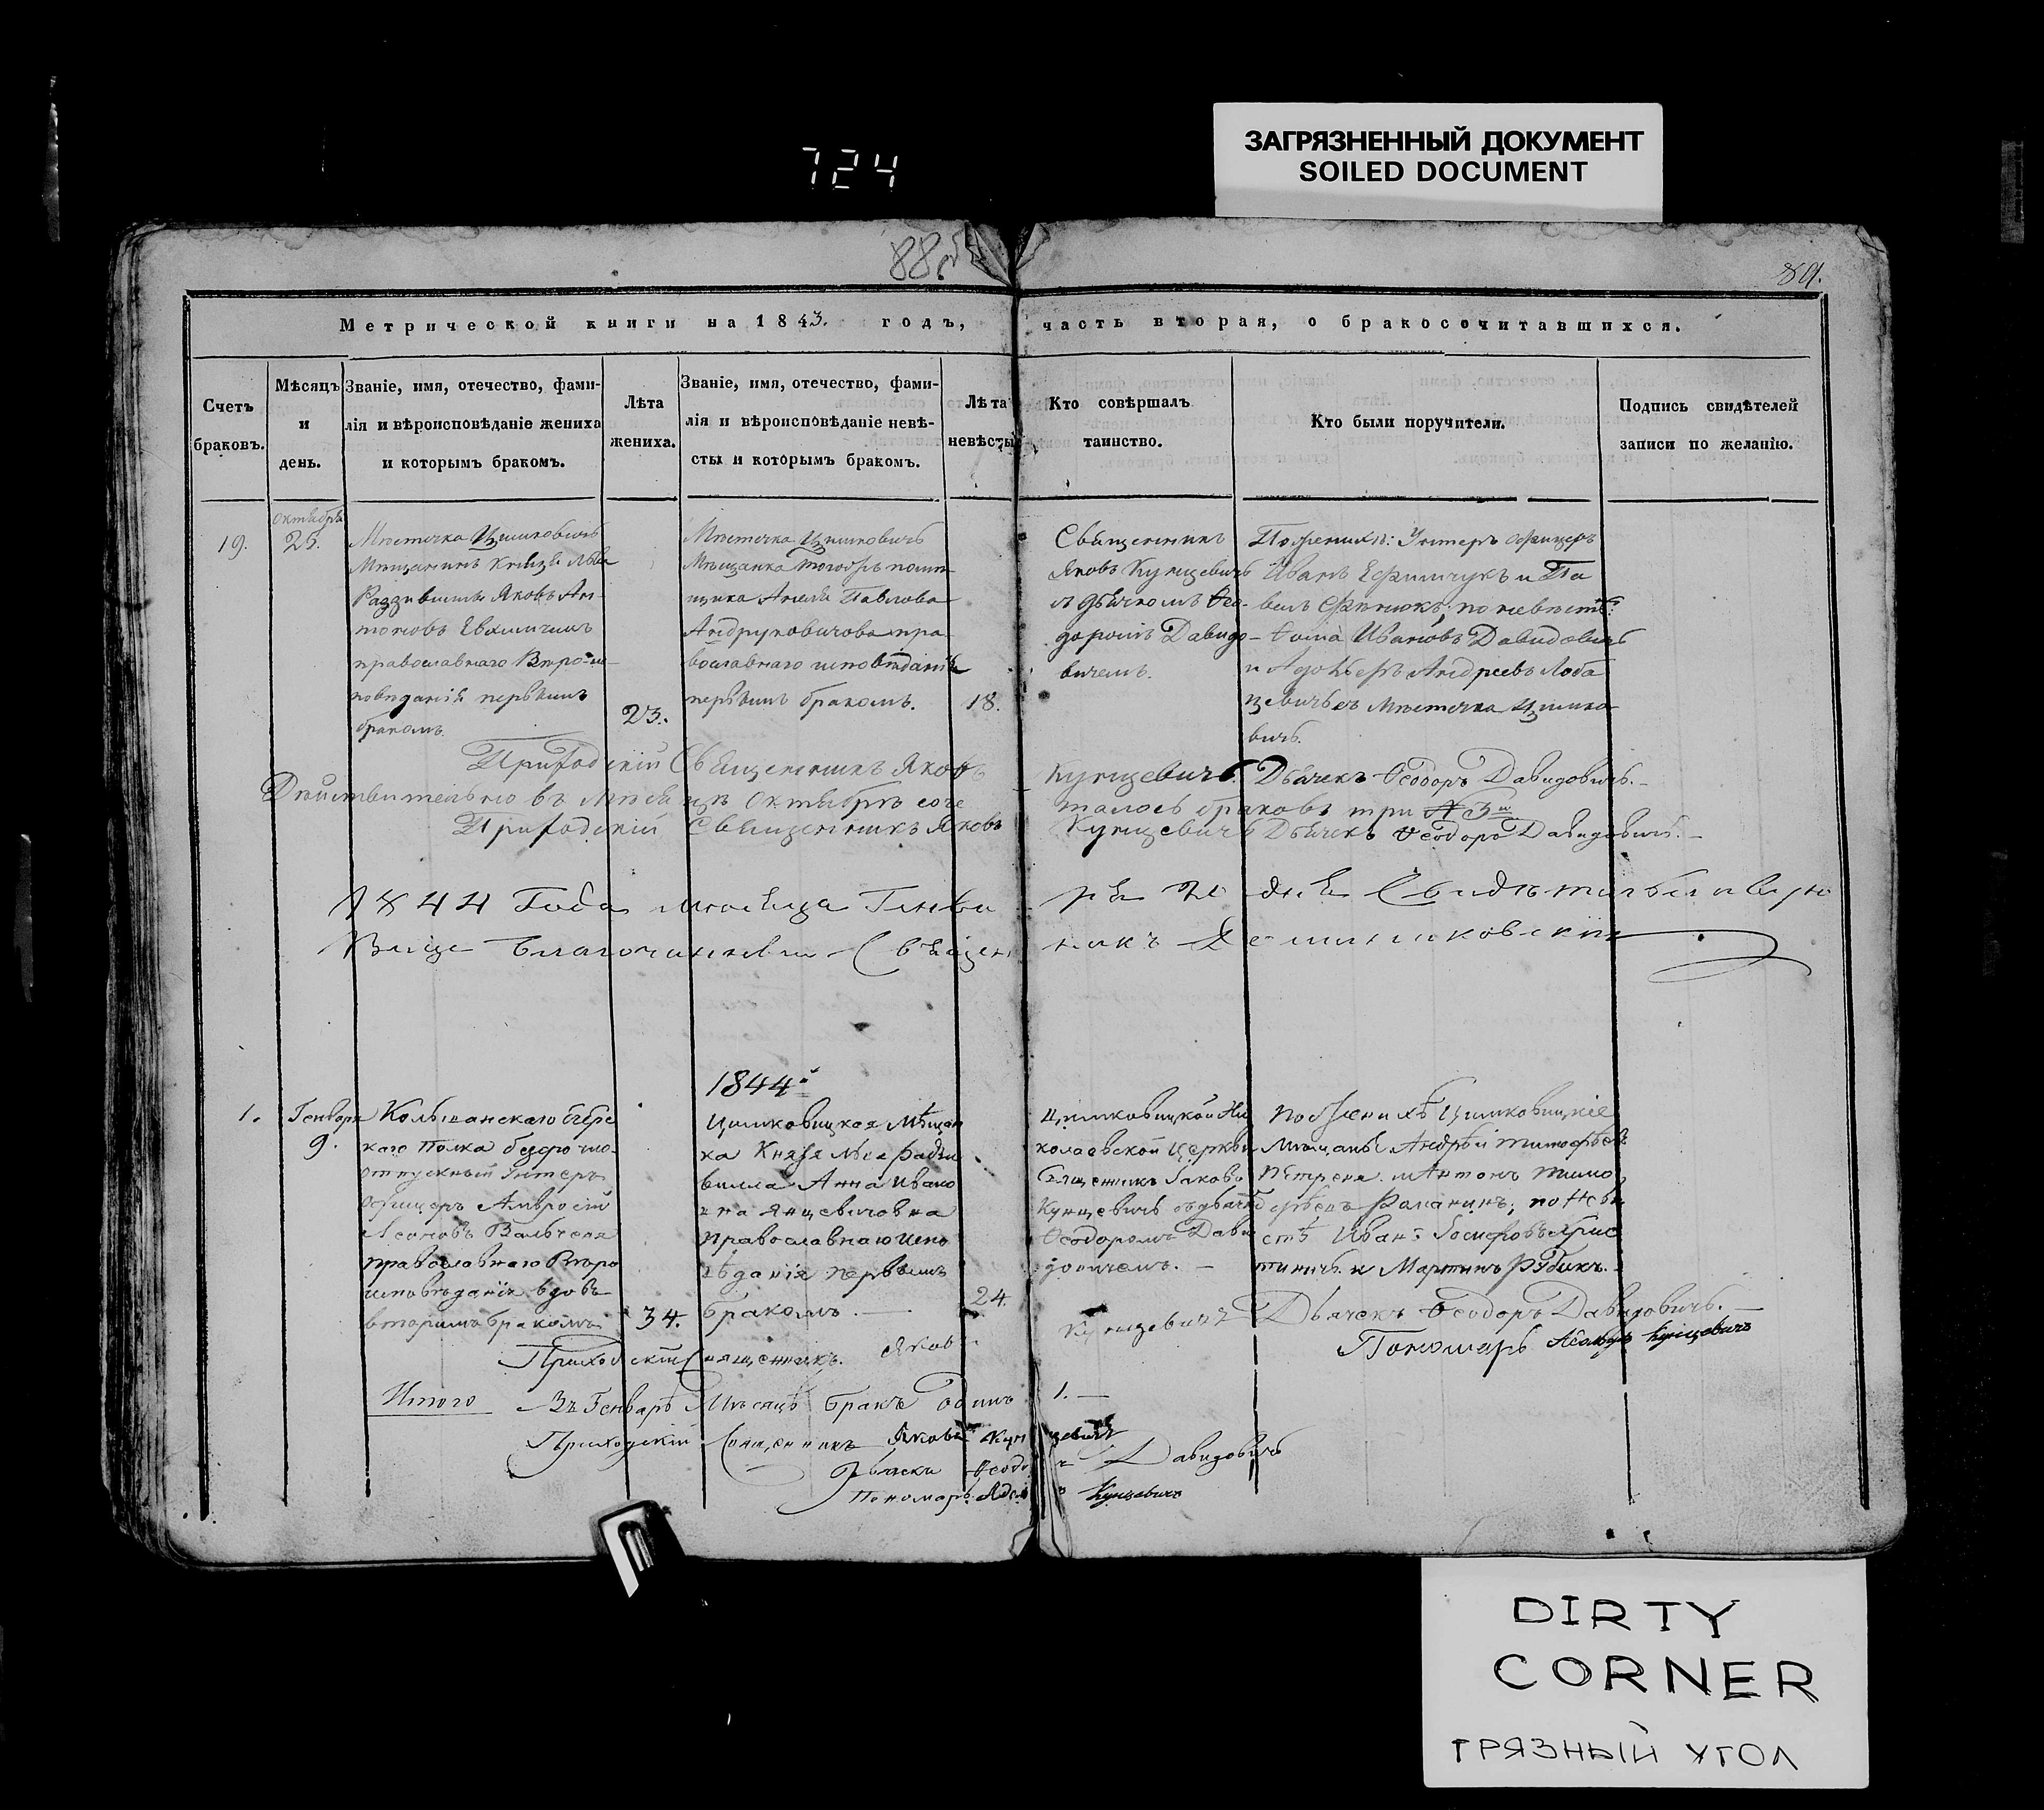 ЗАГРЯЗНЕННЫЙ ДОКУМЕНТ
SOILED DOCUMENT
724
88.
89.
Метрической книги на 1843. годъ, часть вторая, о бракосочитавшихся.
Счетъ браковъ.
Мѣсяцъ и день.
Званіе, имя, отечество, фами-
лія и вѣроисповѣданіе жениха
и которымъ бракомъ.
Лѣта жениха.
Званіе, имя, отечество, фами-
лія и вѣроисповѣданіе невѣ-
сты и которымъ бракомъ.
Лѣта невѣсты
Кто совѣршалъ
таинство.
Кто были поручители.
Подпись свидѣтелей
записи по желанію.
19.
Октября
25.
Мѣстечка Цимковичь
Мѣщанинъ Князя Льва
Радзивилла Яковъ Ан-
тоновъ
православнаго Вѣроис-
повѣданія первымъ
бракомъ.
23.
Мѣстечка Цимковичь
Мѣщанка тогожъ помѣ-
щика Анеля Павлова
Андруковичова пра-
вославнаго исповѣданія
первымъ бракомъ.
18.
Священникъ
Яковъ Кунцевичь
съ дьячкомъ Ѳео-
доромъ Давидо-
вичемъ.
По женихѣ: Унтеръ офицеръ
Иванъ Ефимчукъ и Па
велъ по невѣстѣ:
Ѳома Ивановъ Давидовичь
и Андреевъ Лоба
цевичь съ Мѣстечка Цимко-
вичь.
Приходскій Священникъ Яковъ Кунцевичь. Дьячекъ Ѳеодоръ Давидовичь.
Дѣйствительно въ Мѣсяцѣ Октябрѣ соче талось браковъ три № 3
Приходскій Священникъ Яковъ Кунцевичь Дьячекъ Ѳеодоръ Давидовичь.
1844 Года мѣсяца Генва ря 20 дня Свидѣтельствовалъ
Вице Благочинный Священ никъ
1844
1.
Генваря
9.
Колыванскаго Егерс
каго Полка безсрочно
отпускный Унтеръ
офицеръ Амвросій
Леоновъ
православнаго Вѣро
исповѣданія вдовъ
вторымъ бракомъ.
34.
Цимковицкая Мѣщан
ка Князя Льва Радзи
вилла Анна Ивано
вна Янцевичовна
православнаго испо
вѣданія первымъ
бракомъ.
24.
Цимковицкой Ни
колаевской Церкви
Священникъ Іаковъ
Кунцевичь съ дьячко
Ѳеодоромъ Дави
довичемъ.
По Женихѣ Цимковицкіе
Мѣщане Андрей Тимофѣевъ
Петреня и Антонъ Тимо
фѣевъ Романинъ; по Невѣ
стѣ Иванъ Іосифовъ Хрис
тиничь и Мартинъ Рябикъ.
Приходскій Священникъ. Яковъ Кунцевичъ Дьячекъ Ѳеодоръ Давидовичь.
Пономарь Кунцевичъ
Итого Въ Генварѣ Мѣсяцѣ бракъ одинъ 1.
Приходскій Священникъ Яковъ Кун цевичъ
Дьячекъ Ѳеодо ръ Давидовичь
Пономарь Кунцевичъ
DIRTY
CORNER
ГРЯЗНЫЙ УГОЛ